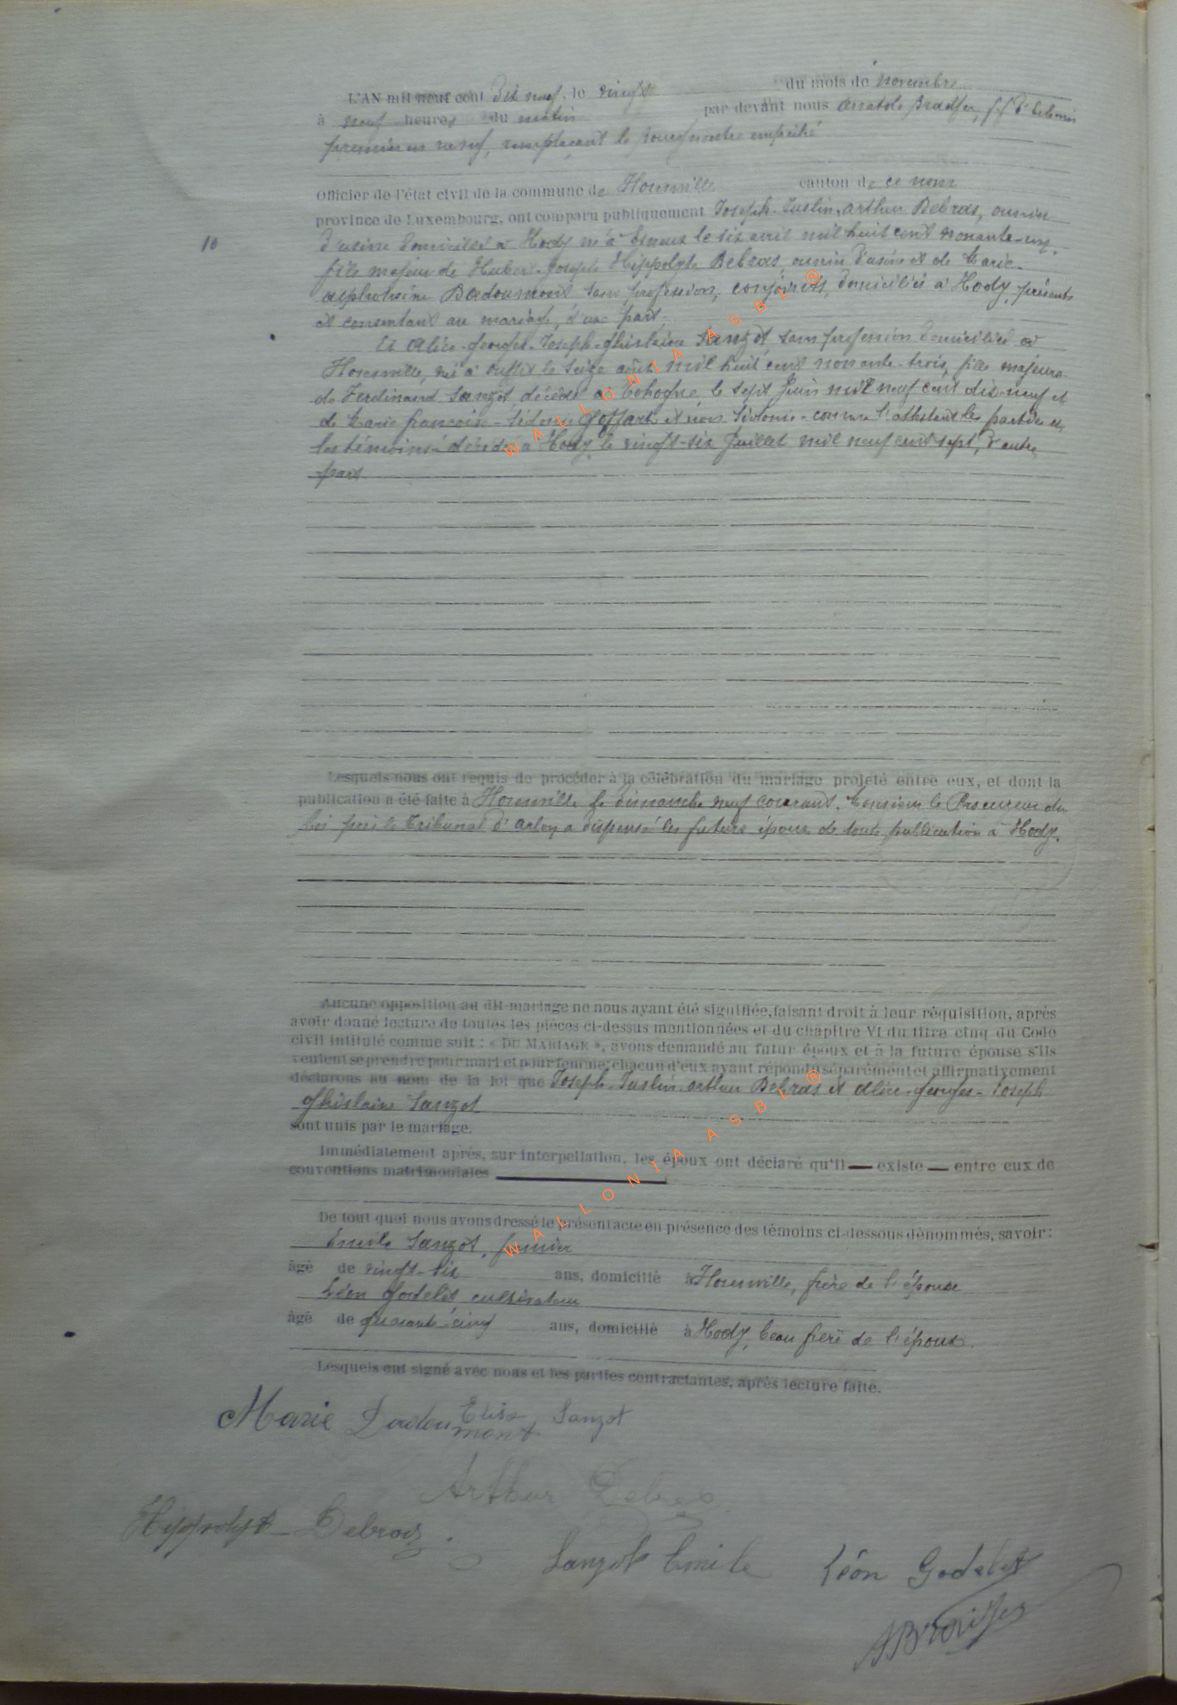 L'AN mil neuf cent dix neuf, le vingt du mois de novembre
à neuf heures du matin par devant nous
premier en rang, remplaçant le bourgmestre empêché
Officier de l'état civil de la commune de Houmville canton de ce nom
province de Luxembourg, ont comparu publiquement Joseph-Justin-Arthur Debras, ouvrier
10
d'usine domicilié à Hody né à Esneux le six avril mil huit cent nonante-un,
fils majeur de Hubert-Joseph Hippolyte Debras, ouvrier d'usine et de Marie-
Dodoumont sans profession, conjoints, domiciliés à Hody, présents
et consentant au mariage, d'une part,
Et Alice-Georges-Joseph-Ghislaine Sanzot, sans profession domiciliée à
né à le seize août mil huit cent nonante-trois, fille majeure
de Ferdinand Sanzot décédé à Tohogne, le sept juin mil neuf cent dix-neuf et
de Marie françoise-Sidonie Goffart et non Sidonie comme l'attestent les parties et
les témoins décédée à Hody le vingt-six juillet mil neuf cent sept, d'autre
part
Lesquels nous ont requis de procéder à la célébration du mariage projeté entre eux, et dont la
publication a été faite à le dimanche neuf courant. Monsieur le Procureur du
Roi près le Tribunal d'Arlon a dispensé les futurs époux de toute publication à Hody.
Aucune opposition au dit mariage ne nous ayant été signifiée, faisant droit à leur réquisition, après
avoir donné lecture de toutes les pièces ci-dessus mentionnées et du chapitre VI du titre cinq du Code
civil intitulé comme suit : « DU MARIAGE », avons demandé au futur époux et à la future épouse s'ils
veulent se prendre pour mari et pour femme; chacun d'eux ayant répondu séparément et affirmativement
déclarons au nom de la loi que Joseph-Justin-Arthur Debras et Alice-Georges-Joseph
Ghislaine Sanzot
sont unis par le mariage.
Immédiatement après, sur interpellation, les époux ont déclaré qu'il — existe — entre eux de
conventions matrimoniales
De tout quoi nous avons dressé le présent acte en présence des témoins ci-dessous dénommés, savoir :
Émile Sanzot, fermier
âgé de vingt-six ans, domicilié à frère de l'épouse
Léon Godelet cultivateur
âgé de quarante-cinq ans, domicilié à Hody, beau frère de l'époux.
Lesquels ont signé avec nous et les parties contractantes, après lecture faite.
Marie Dodoumont Sanzot
Arthur Debras
Hippolyte Debras.
Sanzot Emile Léon Godelet
WALLONIA ASBL ®
WALLONIA ASBL ®